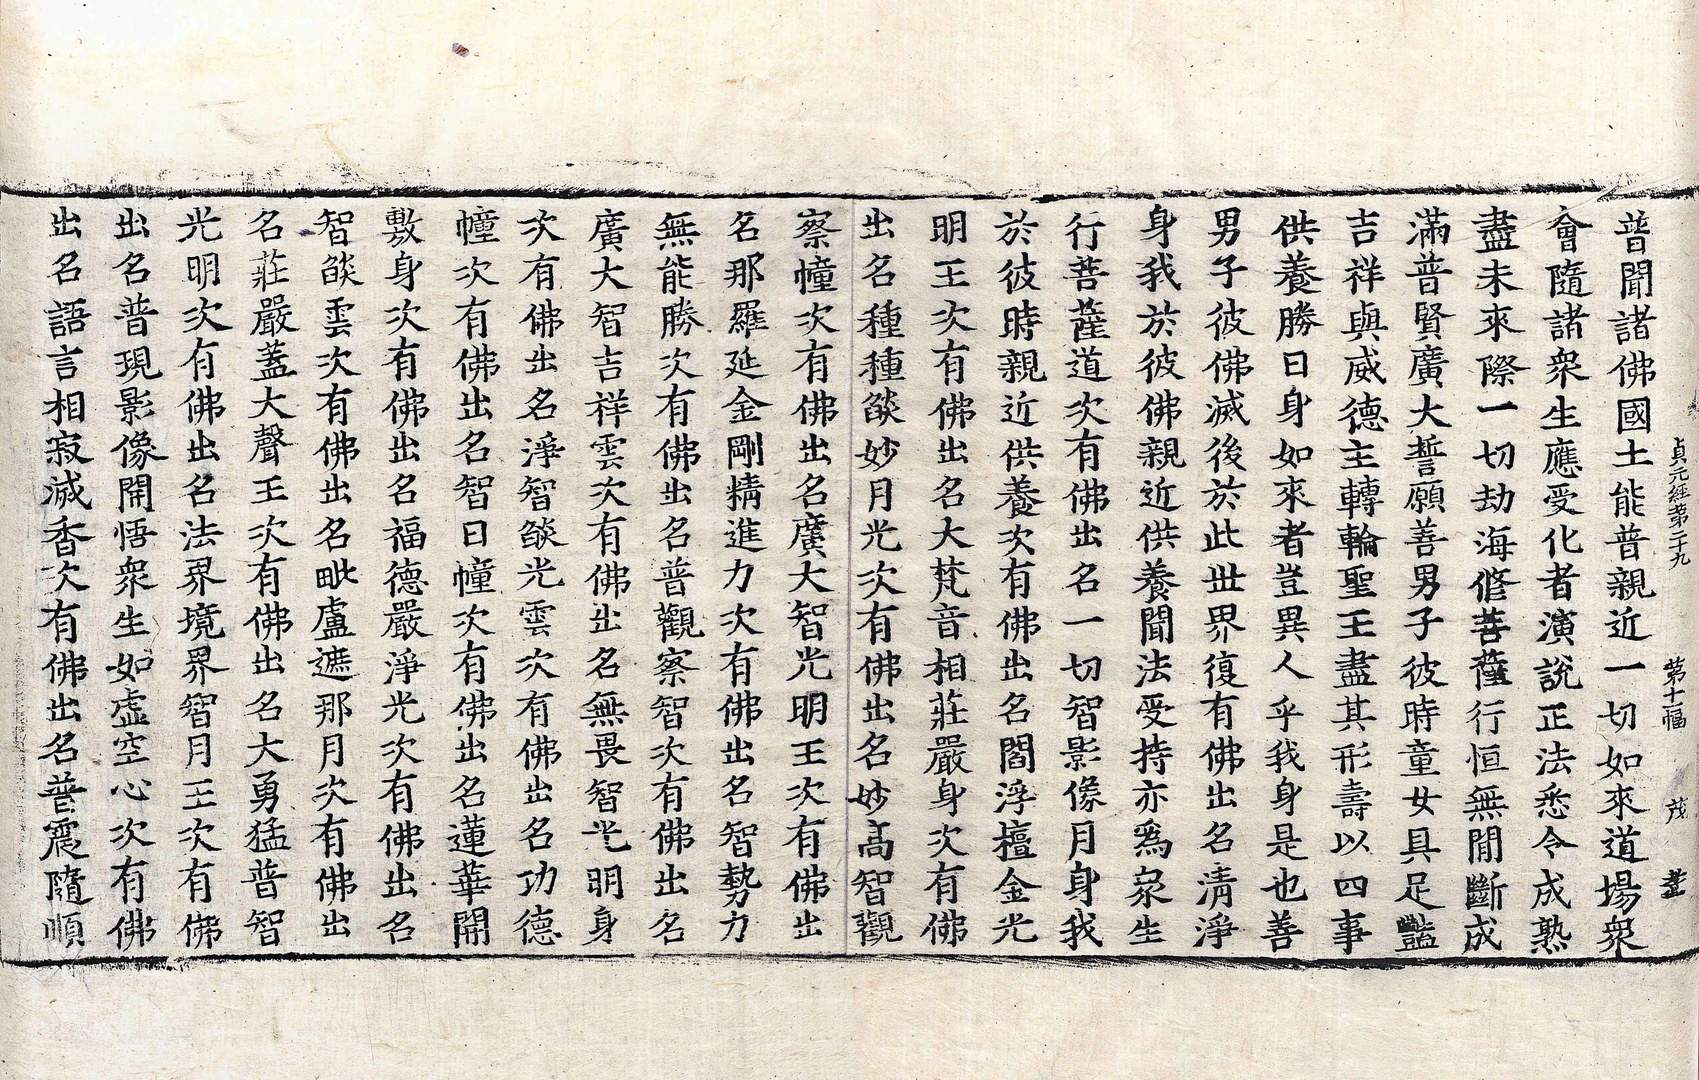 貞元經第二十九　第十二幅　茂
普聞諸佛國土能普親近一切如來道場衆
會隨諸衆生應受化者演説正法悉令成熟
盡未來際一切劫海修菩薩行恒無閒斷成
滿普賢廣大誓願善男子彼時童女具足豔
吉祥與威德主轉輪聖王盡其形壽以四事
供養勝日身如來者豈異人乎我身是也善
男子彼佛滅後於此世界復有佛出名清淨
身我於彼佛親近供養聞法受持亦爲衆生
行菩薩道次有佛出名一切智影像月身我
於彼時親近供養次有佛出名閻浮檀金光
明王次有佛出名大梵音相莊嚴身次有佛
出名種種燄妙月光次有佛出名妙髙智觀
察幢次有佛出名廣大智光明王次有佛出
名那羅延金剛精進力次有佛出名智勢力
無能勝次有佛出名普觀察智次有佛出名
廣大智吉祥雲次有佛出名無畏智光明身
次有佛出名淨智燄光雲次有佛出名功德
幢次有佛出名智日幢次有佛出名蓮華開
敷身次有佛出名福德嚴淨光次有佛出名
智燄雲次有佛出名毗盧遮那月次有佛出
名莊嚴蓋大聲王次有佛出名大勇猛普智
光明次有佛出名法界境界智月王次有佛
出名普現影像開悟衆生如虛空心次有佛
出名語言相寂滅香次有佛出名普震隨順